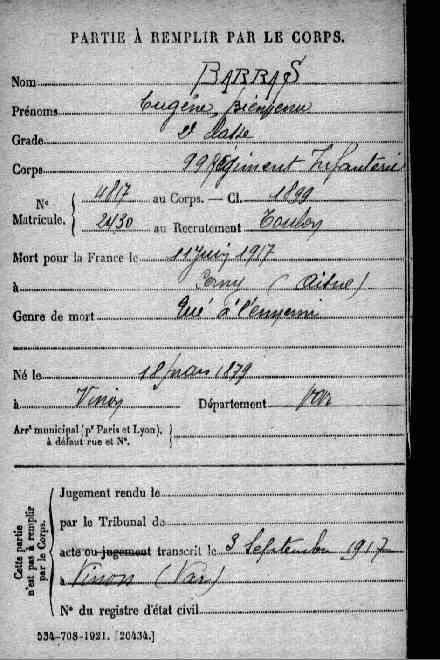 PARTIE À REMPLIR PAR LE CORPS.
Nom BARRAS
Prénoms Eugène, Bienvenu
Grade 2e Classe
Corps 99 Régiment Infanterie
N° Matricule. 4817 au Corps. — Cl. 1899
2430 au Recrutement Toulon
Mort pour la France le 11 Juin 1917
à Cerny (Aisne)
Genre de mort Tué à l'ennemi
Né le 18 mars 1879
à Vinon Département Var
Arrt municipal (pr Paris et Lyon), à défaut rue et N°.
Cette partie n'est pas à remplir par le Corps.
Jugement rendu le
par le Tribunal de
acte ou jugement transcrit le 3 Septembre 1917
à Vinon (Var)
N° du registre d'état civil
534-708-1921. [26434.]